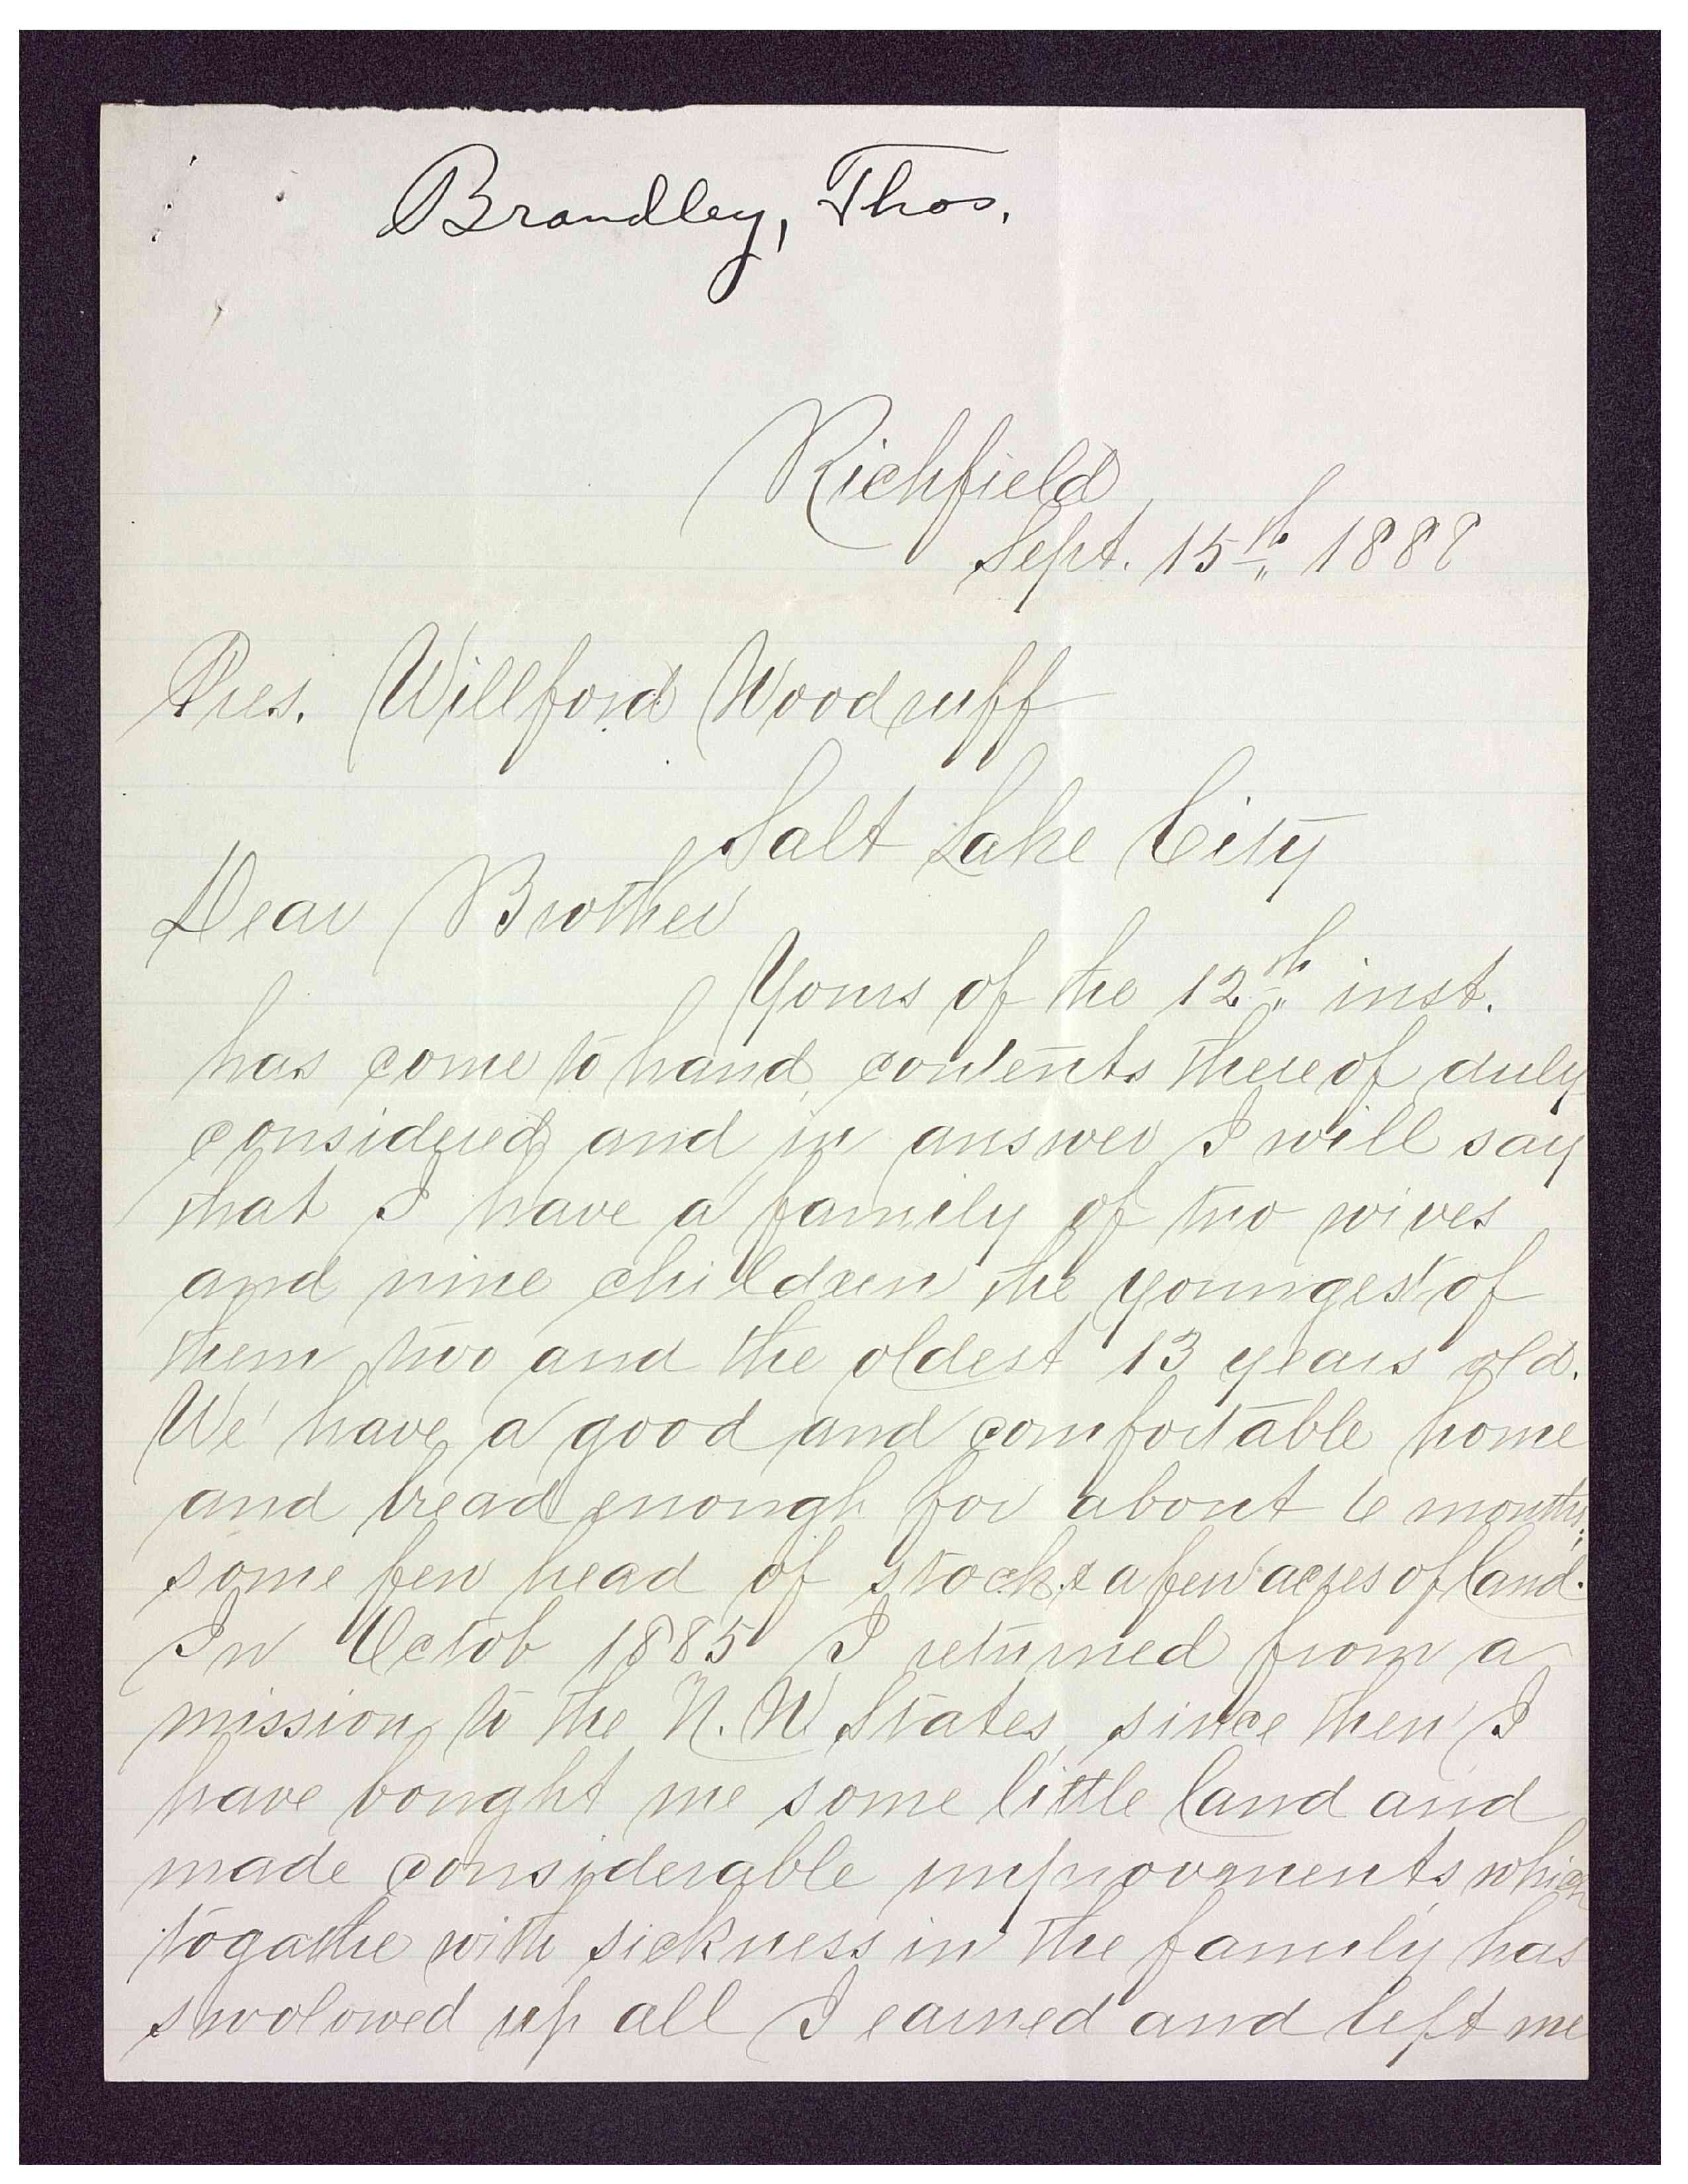 Brandley, Thos.
Richfield
Sept. 15th 1888
Pres. Willford Woodruff
Salt Lake City
Dear Brother
Yours of the 12th inst.
has come to hand, contents thereof duly
considered and in answer I will say
that I have a family of two wives
and nine children the youngest of
them two and the oldest 13 years old.
We have a good and comfortable home
and bread enough for about 6 months,
some few head of stock & a few acres of land.
In Octob 1885 I returned from a
mission to the N.W. States, since then I
have bought me some little land and
made considerable improvments which
togathe with sickness in the family has
swolowed up all I earned and left me